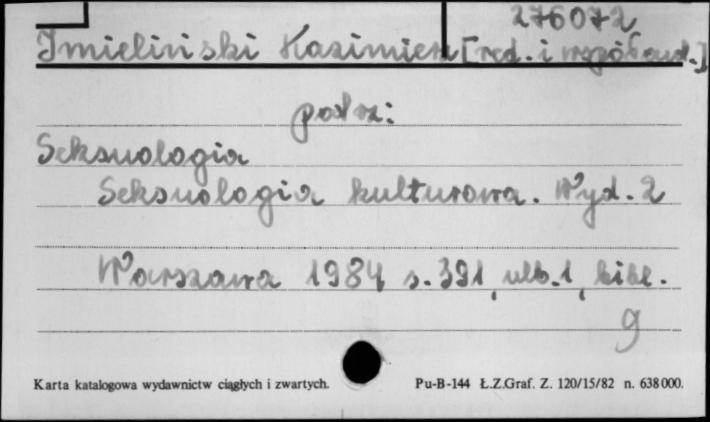 276072
Imieliński Kazimierz [red. i współaut.]
patrz:
Seksuologia
Seksuologia kulturowa. Wyd. 2
Warszawa 1984 s. 391, ulb. 1, bibl.
g
Karta katalogowa wydawnictw ciągłych i zwartych. Pu-B-144 Ł.Z.Graf. Z. 120/15/82 n. 638000.